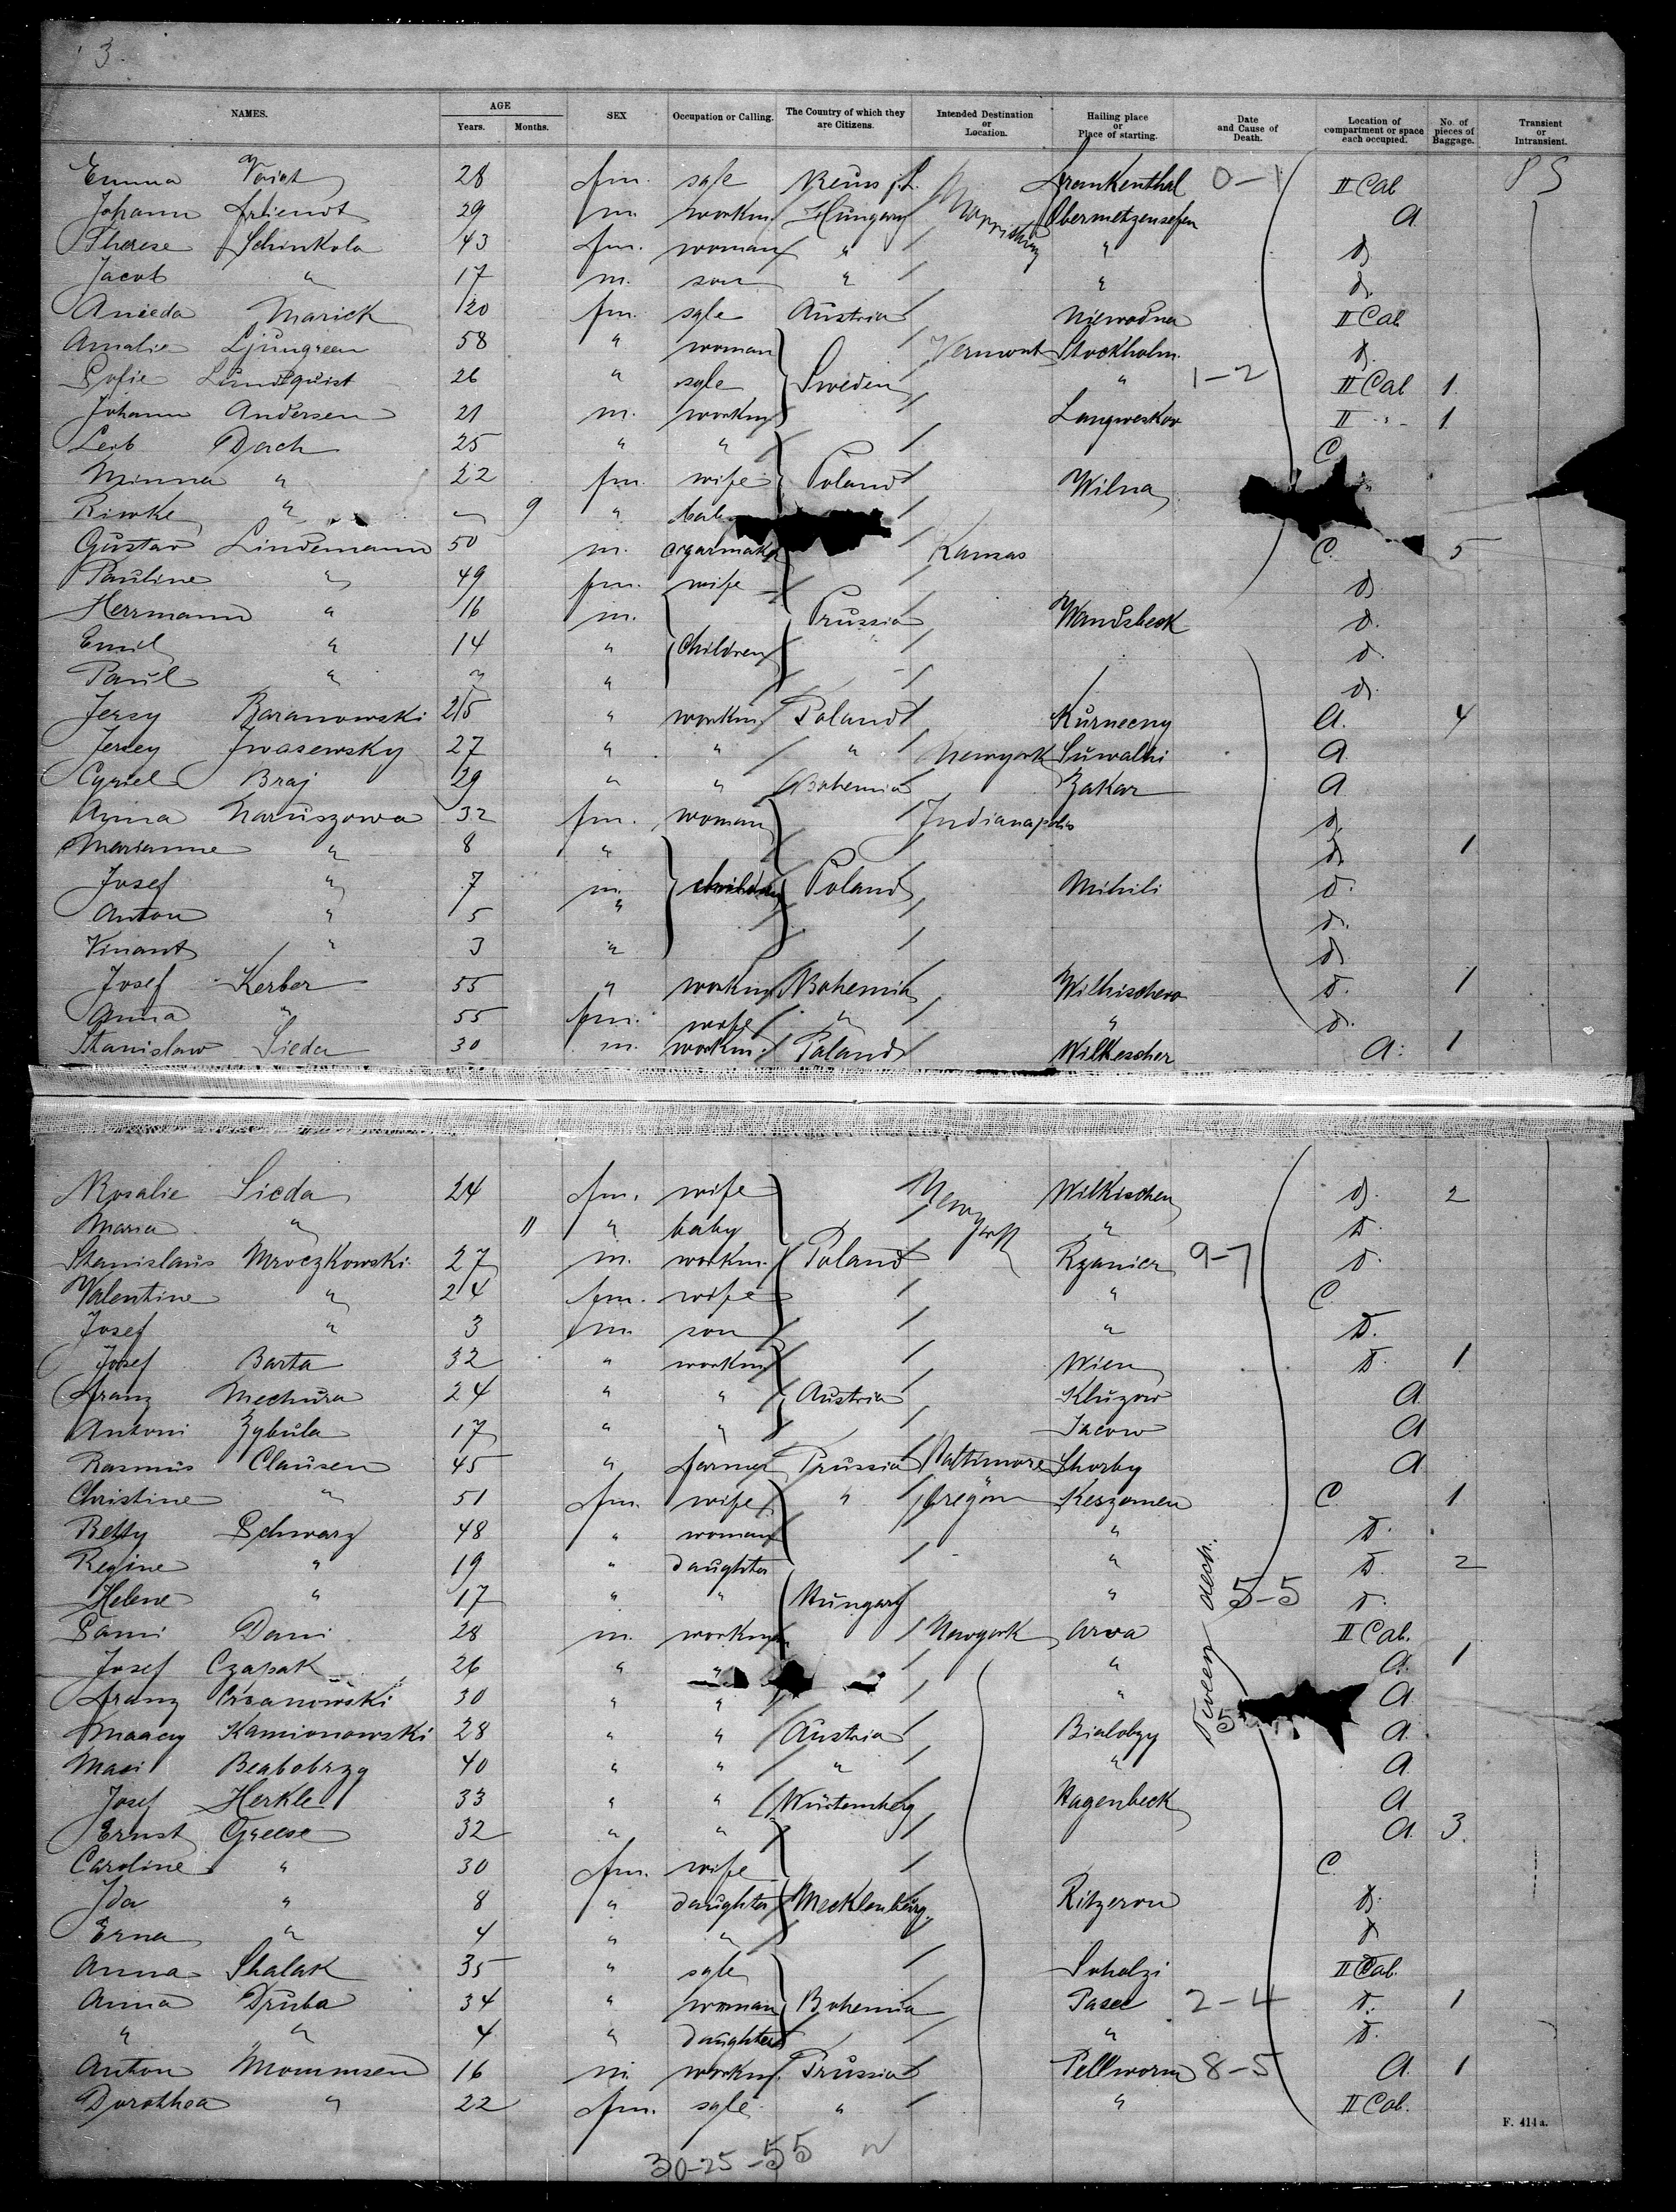 3.
NAMES. AGE Years. Months. SEX Occupation or Calling. The Country of which they are Citizens. Intended Destination or Location. Hailing place or Place of starting. Date and Cause of Death. Location of compartment or space each occupied. No. of pieces of Baggage. Transient or Intransient.
Emma Voigt 28 fm. sgle Reuss j.L. Frankenthal 0-1 II Cab PS
Johann 29 m. workm. Hungary Obermetzenseifen a.
Therese Schinkola 43 fm. woman " " D
Jacob " 17 m. son " " D.
Anieda Marick 20 fm. sgle Austria Niewodna II Cab
Amalie Ljungreen 58 " woman Vermont Stockholm. D.
Sofie Lundquist 26 " sgle Sweden " 1-2 II Cab 1.
Johann Andersen 21 m. workm Langweskov II " 1.
Leib Dach 25 " " C
Minna " 22 fm. wife Poland Wilna
Riwke " 9 "
Gustav Lindemann 50 m. cigarmaker Kansas C. 5
Pauline " 49 fm. wife D.
Herrmann " 16 m. Prussia Wandsbeck D.
Emil " 14 " children " D.
Paul " " D.
Jersy Baranowski 25 " workm. Poland Kurneeny a. 4
Jersey Jwasewsky 27 " " " Newyork Suwalki a
Cyriel Braj 29 " " Bohemia Zakar a
Anna Naruszowa 32 fm. woman Indianapolis D.
Marianne " 8 " D. 1
Josef " 7 m. children Poland Mihili D.
Anton " 5 " D.
Vinant " 3 " D
Josef Kerber 55 " workm Bohemia Wilkischen D. 1
Anna " 55 fm. wife " " D.
Stanislaw Sieda 30 m. workm. Poland Wilkescher a. 1
Rosalie Sieda 24 fm. wife Newyork Wilkischen D. 2
Maria " 11 " baby " D.
Stanislaus Mroczkowski 27 m. workm. Poland Rzanicz 9-7 D.
Valentine " 24 fm. wife " C
Josef " 3 m. son " D.
Josef Barta 32 " workm Wien D. 1
Franz Mechura 24 " " Austria Kluzow a.
Antoni Zybula 17 " " Jacow a
Rasmus Clausen 45 " farmer Prussia Baltimore Skorby a
Christine " 51 fm. wife " Oregon Keszomen C 1
Betty Schwarz 48 " woman " D.
Regine " 19 " daughter " D. 2
Helene " 17 " " Hungary " 5-5 D.
Sami Dani 28 m. workm Newyork Arva II Cab.
Josef Czapak 26 " " " a. 1
Franz 30 " " " a
Maacy Kamionowski 28 " " Austria Bialobzy 5 a.
Maci Beabobrzg 40 " " " " a
Josef Herkle 33 " " Würtemberg Hagenbeck a
Ernst Greese 32 " " a. 3.
Caroline " 30 fm. wife C
Ida " 8 " daughter Mecklenburg. Ritzerow D.
Erna " 4 " " D
Anna Skalak 35 " sgle Soholzi II Cab.
Anna Druba 34 " woman Bohemia Pasec 2-4 D. 1
" " 4 " daughter " D.
Anton Mommsen 16 m. workm. Prussia Pellworm 8-5 a. 1
Dorothea " 22 fm. sgle " " II Cab.
F. 414 a.
30-25-55